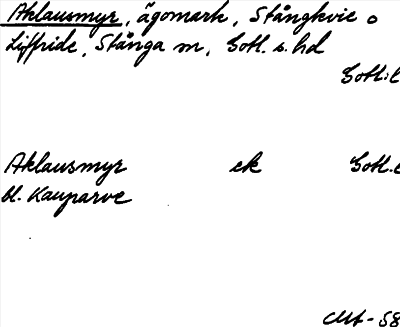 Aklausmyr, ägomark, Stångkvie o
Liffride, Stånga sn, Gotl. s. hd
Gotl:l
Aklausmyr ek Gotl.
bl. Kauparve
-58